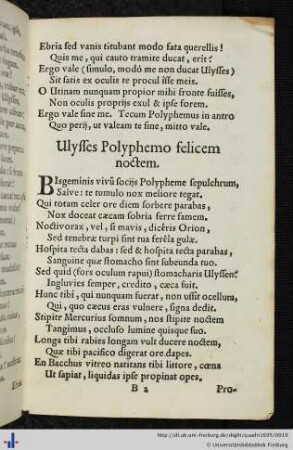 Ebria sed vanis titubant modo fata querellis!
Quis me, qui cauto tramite ducat, erit?
Ergo vale (simulo, modó me non ducat Ulysses)
Sit satis ex oculis te procul isse meis.
O Utinam nunquam propior mihi fronte fuisses,
Non oculis proprijs exul & ipse forem.
Ergo vale sine me. Tecum Polyphemus in antro
Quo perij, ut valeam te sine, mitto vale.
Ulysses Polyphemo felicem
noctem.
BIsgeminis vivũ socijs Polypheme sepulchrum,
Salve: te tumulo nox meliore tegat.
Qui totam celer ore diem sorbere parabas,
Nox doceat cæcam sobria ferre famem.
Noctivorax, vel, si mavis, dicêris Orion,
Sed tenebræ turpi sint tua ferêla gulæ.
Hospita tecta dabas: sed & hospita tecta parabas,
Sanguine quæ stomacho sint subeunda tuo.
Sed quid (fors oculum rapui) stomacharis Ulyssen?
Ingluvies semper, credito, cæca fuit.
Hunc tibi, qui nunquam fuerat, non ussit ocellum,
Qui, quo cæcus eras vulnere, signa dedit.
Stipite Mercurius somnum, nos stipite noctem
Tangimus, occluso lumine quisque suo.
Longa tibi rabies longam vult ducere noctem,
Quæ tibi pacifico digerat ore dapes.
En Bacchus vitreo natitans tibi littore, cœna
Ut sapiat, liquidas ipse propinat opes.
B 2
Pro-
http://dl.ub.uni-freiburg.de/diglit/quadri1695/0019
© Universitätsbibliothek Freiburg